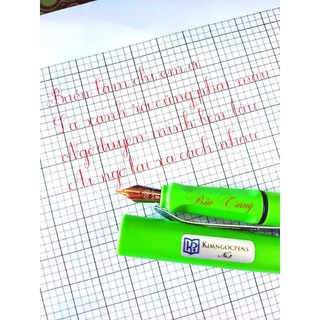 Buồn làm chi em ơi
Lá xanh rồi cũng phai màu
Ngỡ duyên mình bền lâu
Ai ngờ lại xa cách nhau
Bảo Trang
KIMNGOCPENS